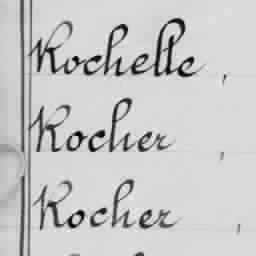 Rochelle,
Rocher,
Rocher,